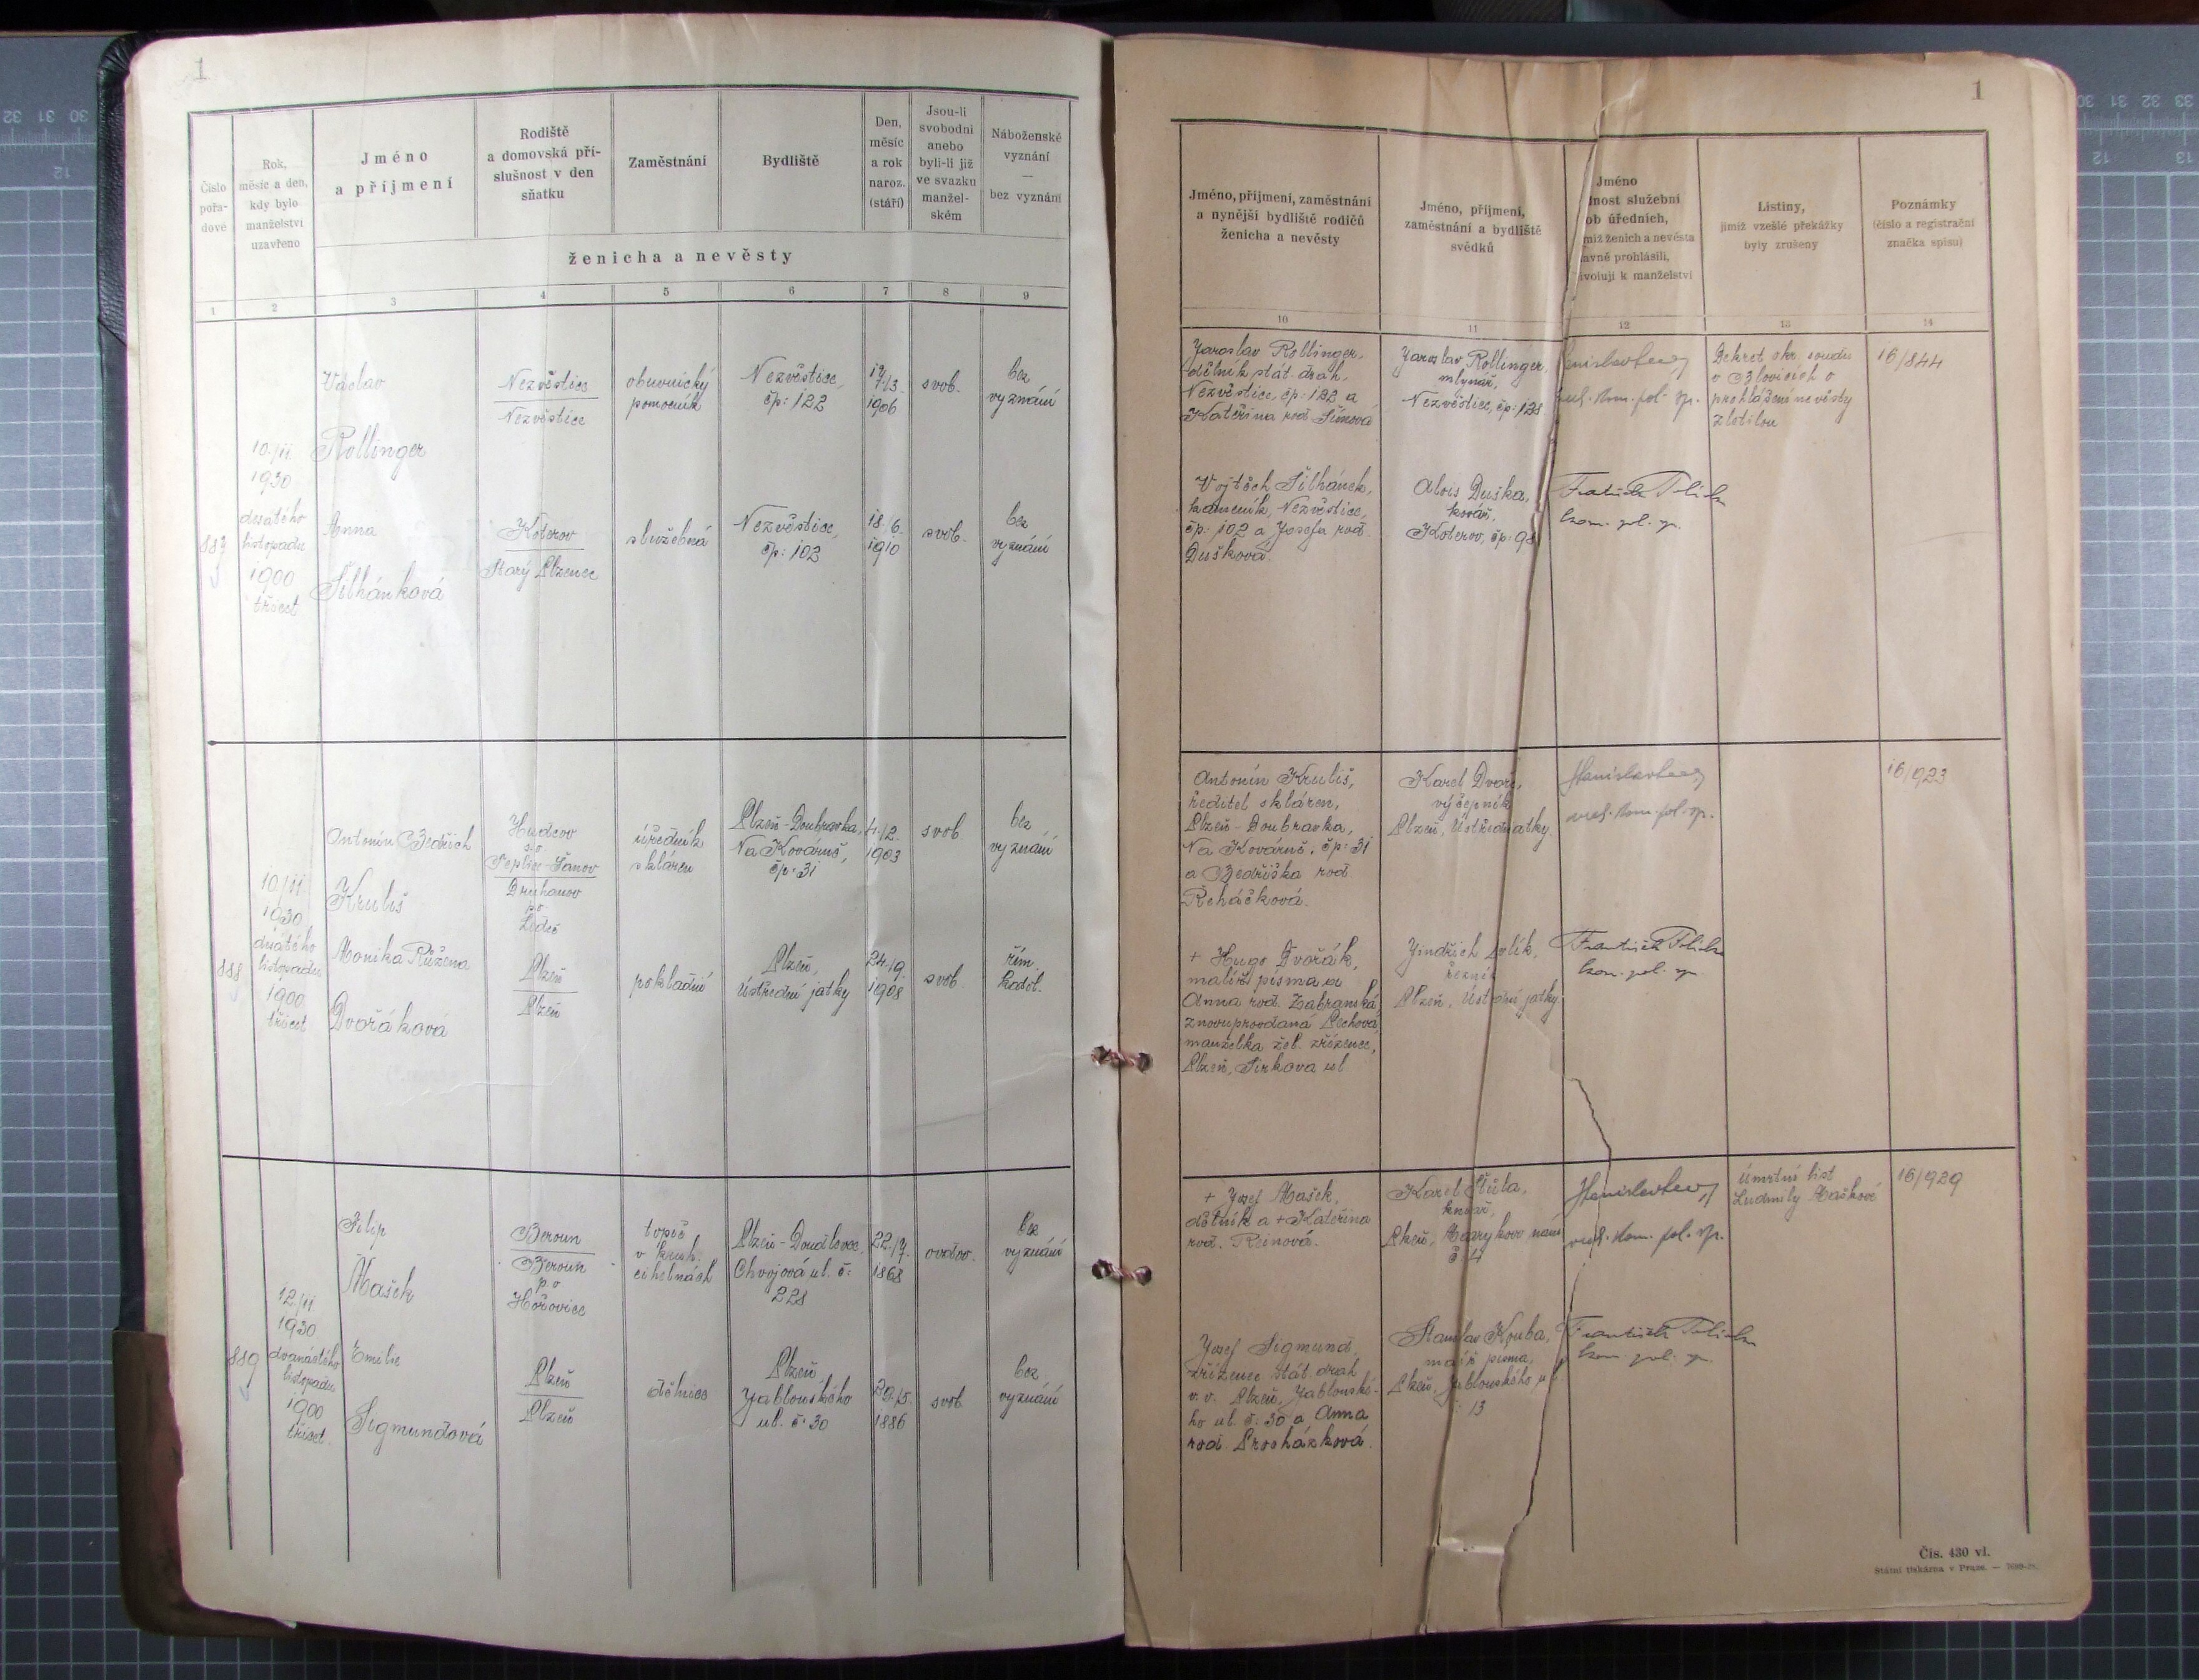 1
Číslo
pořa-
dové
Rok,
měsíc a den,
kdy bylo
manželství
uzavřeno
Jméno
a příjmení
Rodiště
a domovská pří-
slušnost v den
sňatku
Zaměstnání
Bydliště
Den,
měsíc
a rok
naroz.
(stáří)
Jsou-li
svobodni
anebo
byli-li již
ve svazku
manžel-
ském
Náboženské
vyznání
—
bez vyznání
ženicha a nevěsty
1 2 3 4 5 6 7 8 9
887
10./11.
1930
desátého
listopadu
1900
třicet
Václav
Rollinger
Nezvěstice
Nezvěstice
obuvnický
pomocník
Nezvěstice,
čp: 122
1906
svob.
bez
vyznání
Anna
Šilhánková
Koterov
Starý Plzenec
služebná
Nezvěstice,
čp: 102
18./6.
1910
svob.
bez
vyznání
888
10/11.
1930
listopadu
1900
třicet
Antonín Bedřich
Kruliš
Hudcov
Teplice-Šanov
Druhanov
p.o.
Ledeč
úředník
skláren
Plzeň-Doubravka,
Na Kovárně,
čp: 31
4./2.
1903
svob
bez
vyznání
Monika Růžena
Dvořáková
Plzeň
Plzeň
pokladní
Plzeň,
Ústřední jatky
24./9.
1908
svob.
řím.
katol.
889
12/11
1930
dvanáctého
listopadu
1900
třicet.
Filip
Mašek
Beroun
Beroun
p.o
Hořovice
topič
v kruh.
cihelnách
Plzeň-Doudlevce,
Chvojová ul. č:
228
22./7.
1868
ovdov.
bez
vyznání
Emilie
Sigmundová
Plzeň
Plzeň
dělnice
Plzeň
Jablonského
ul. č: 30
29./5.
1886
svob.
bez
vyznání
1
Jméno, příjmení, zaměstnání
a nynější bydliště rodičů
ženicha a nevěsty
Jméno, příjmení,
zaměstnání a bydliště
svědků
Jméno
nost služební
ob úředních,
miž ženich a nevěsta
avně prohlásili,
ivolují k manželství
Listiny,
jimiž vzešlé překážky
byly zrušeny
Poznámky
(číslo a registrační
značka spisu)
10 11 12 13 14
Jaroslav Rollinger,
dělník stát. drah,
Nezvěstice, čp: 122 a
Kateřina roz. Šimová
Jaroslav Rollinger,
mlynář,
Nezvěstice, čp: 128
Dekret okr. soudu
v Blovicích o
prohlášení nevěsty
zletilou
16/844
Vojtěch Šilhánek,
kameník, Nezvěstice,
čp: 102 a Josefa roz.
Dušková.
Alois Duška,
kovář,
Koterov, čp: 98
kom. pol. sp.
Antonín Kruliš,
ředitel skláren,
Plzeň-Doubravka,
Na Kovárně, čp: 31
a Bedřiška roz.
Řeháčková.
Karel Dvoř,
výčepník
Plzeň, Ústřed jatky.
16/923
+ Hugo Dvořák,
malíř písma a
Anna roz. Zabranská,
znovuprovdaná Pechová,
manželka žel. zřízence,
Plzeň, Sirkova ul
Jindřich
řezník
Plzeň, Úst dní jatky.
František
kom. pol. sp.
+ Josef Mašek,
dělník a + Kateřina
roz. Reinová.
Karel
kovář,
Plzeň, Masarykovo nám
č. 4
Úmrtní list
Ludmily Maškové
16/929
Josef Sigmund,
zřízenec stát. drah
v. v. Plzeň, Jablonské-
ho ul. č: 30 a Anna
roz. Procházková.
Stanislav Kouba,
malíř písma,
Plzeň, Jablonského ul
13
František
kom. pol. sp.
Čís. 430 vl.
Státní tiskárna v Praze. —